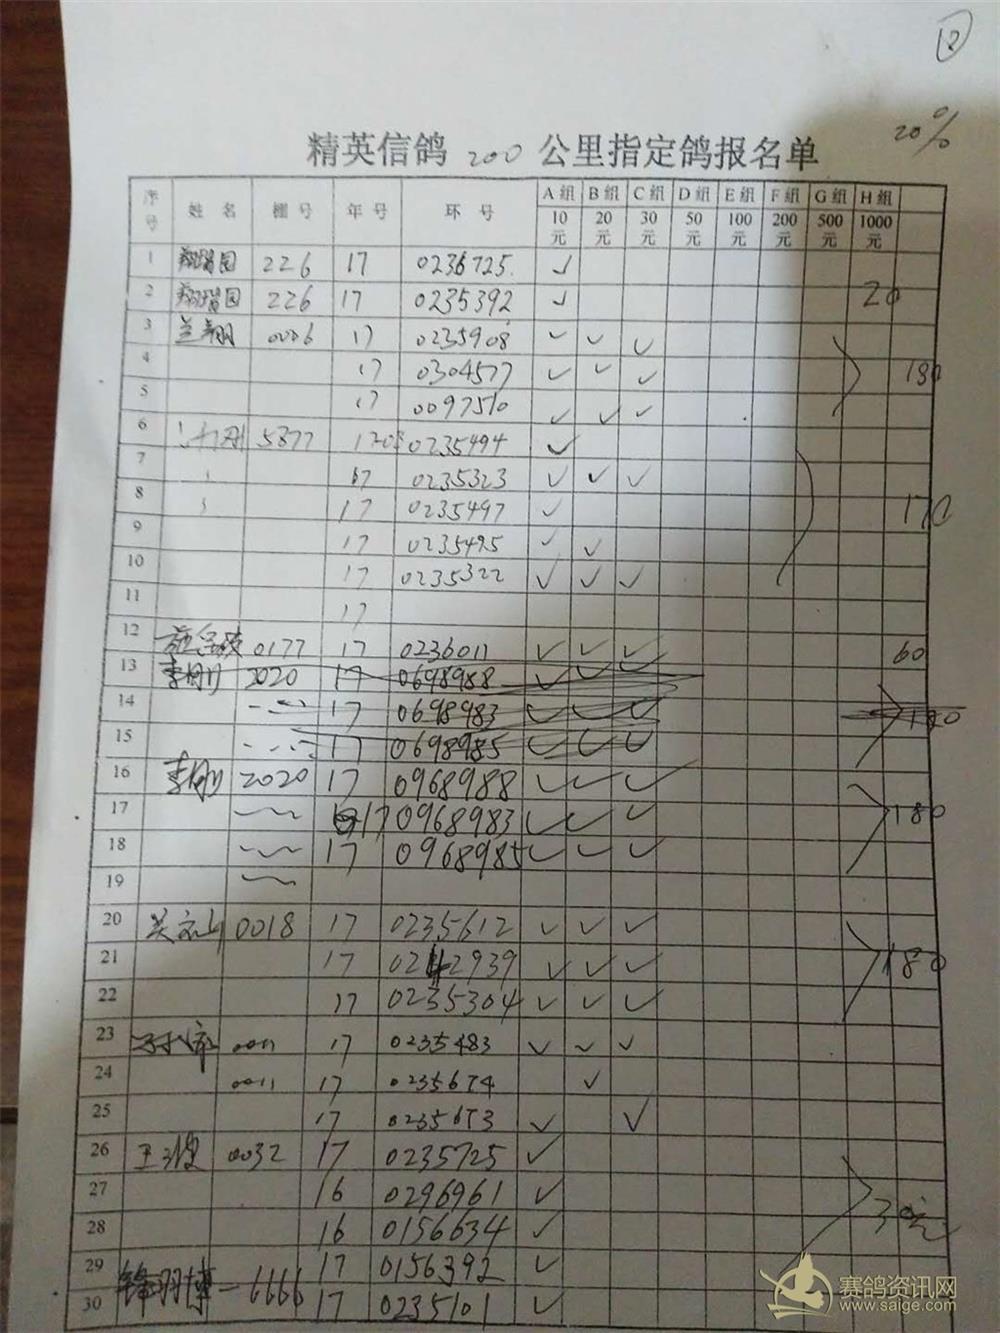 12
20%
精英信鸽 200 公里指定鸽报名单
序号 姓名 棚号 年号 环号 A组 B组 C组 D组 E组 F组 G组 H组
10元 20元 30元 50元 100元 200元 500元 1000元
1 翔瑞园 226 17 0236725 ✓
2 翔瑞园 226 17 0235392 ✓ 20
3 兰翔 0006 17 0235908 ✓ ✓ ✓
4 17 0304577 ✓ ✓ ✓ 180
5 17 0097510 ✓ ✓ ✓
6 5877 17 0235494 ✓
7 17 0235323 ✓ ✓ ✓
8 17 0235497 ✓ 170
9 17 0235495 ✓ ✓
10 17 0235322 ✓ ✓ ✓
11 17
12 0177 17 0236011 ✓ ✓ ✓ 60
13 李刚 2020 17 0698988 ✓ ✓ ✓
14 17 0698983 ✓ ✓ ✓ 180
15 17 0698985 ✓ ✓ ✓
16 李刚 2020 17 0968988 ✓ ✓ ✓
17 17 0968983 ✓ ✓ ✓ 180
18 17 0968985 ✓ ✓ ✓
19
20 吴文山 0018 17 0235612 ✓ ✓ ✓
21 17 0242939 ✓ ✓ ✓ 180
22 17 0235304 ✓ ✓ ✓
23 0011 17 0235483 ✓ ✓ ✓
24 0011 17 0235674 ✓
25 17 0235673 ✓ ✓
26 王俊 0032 17 0235725 ✓
27 16 0296961 ✓
28 16 0156634 ✓ 30元
29 17 0156392 ✓
30 锋羽博-6666 17 0235101 ✓
赛鸽资讯网
www.saige.com